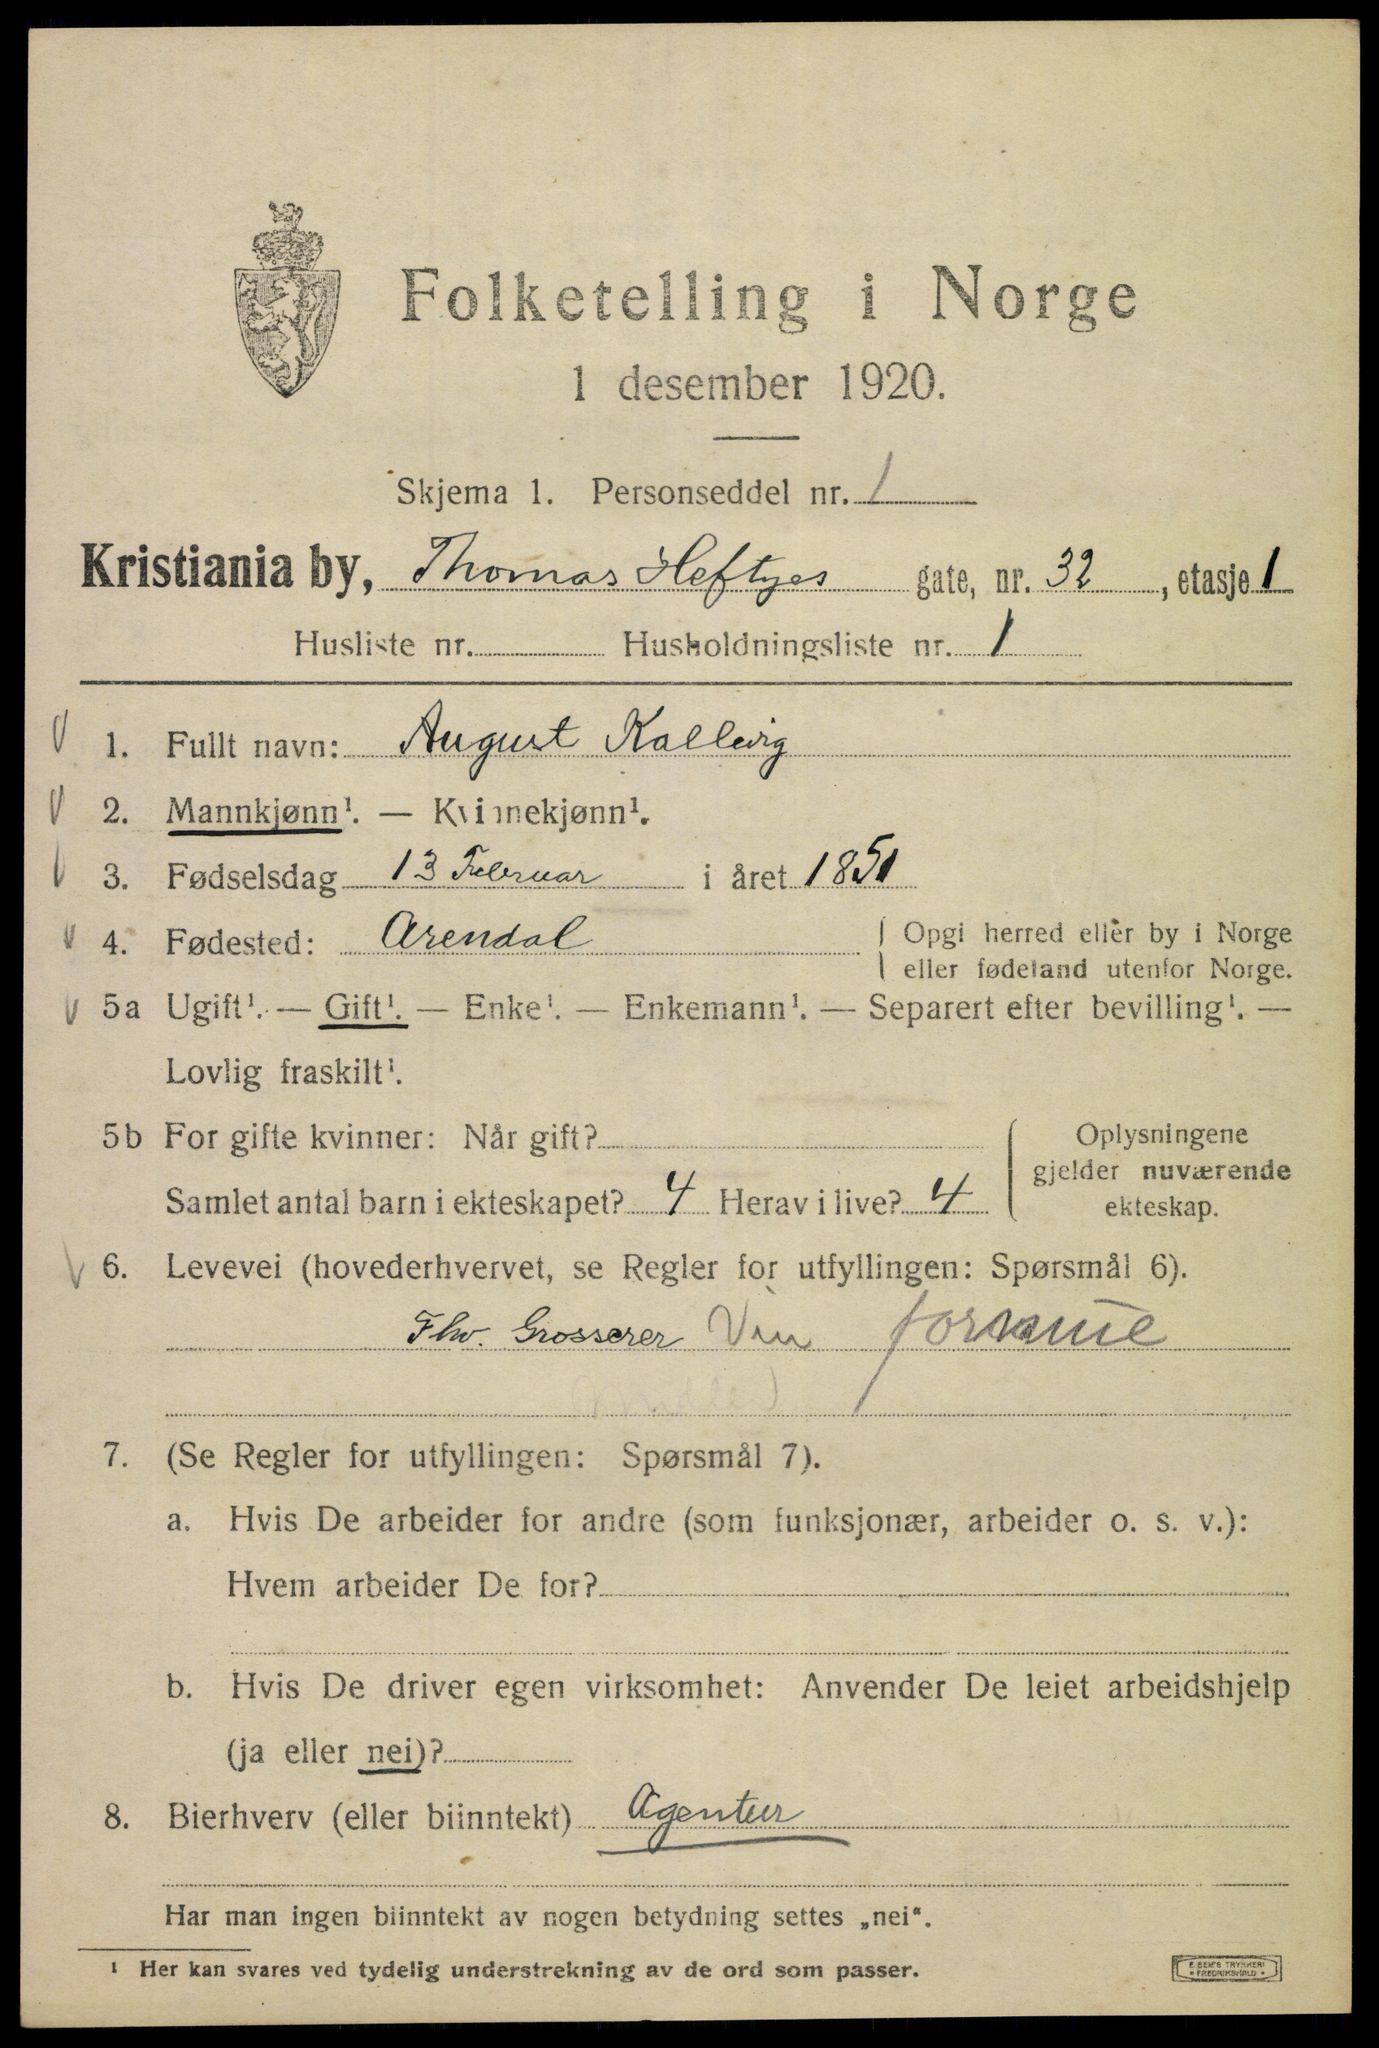 Folketelling i Norge
1 desember 1920.
Skjema 1. Personseddel nr. 1
Kristiania by, Thomas Heftyes gate, nr. 32, etasje 1
Husliste nr. Husholdningsliste nr. 1
1. Fullt navn: August Kallevig
2. Mannkjønn¹. — Kvinnekjønn¹.
3. Fødselsdag 13 Februar i året 1851
4. Fødested: Arendal
Opgi herred eller by i Norge
eller fødeland utenfor Norge.
5a Ugift¹. — Gift¹. — Enke¹. — Enkemann¹. — Separert efter bevilling¹. —
Lovlig fraskilt¹.
5b For gifte kvinner: Når gift?
Samlet antal barn i ekteskapet? 4 Herav i live? 4
Oplysningene
gjelder nuværende
ekteskap.
6. Levevei (hovederhvervet, se Regler for utfyllingen: Spørsmål 6).
Fhv. Grosserer Vin formue
7. (Se Regler for utfyllingen: Spørsmål 7).
a. Hvis De arbeider for andre (som funksjonær, arbeider o. s. v.):
Hvem arbeider De for?
b. Hvis De driver egen virksomhet: Anvender De leiet arbeidshjelp
(ja eller nei)?
8. Bierhverv (eller biinntekt) Agentur
Har man ingen biinntekt av nogen betydning settes „nei“.
¹ Her kan svares ved tydelig understrekning av de ord som passer.
E SEM'S TRYKKERI
• FREDRIKSHALD •